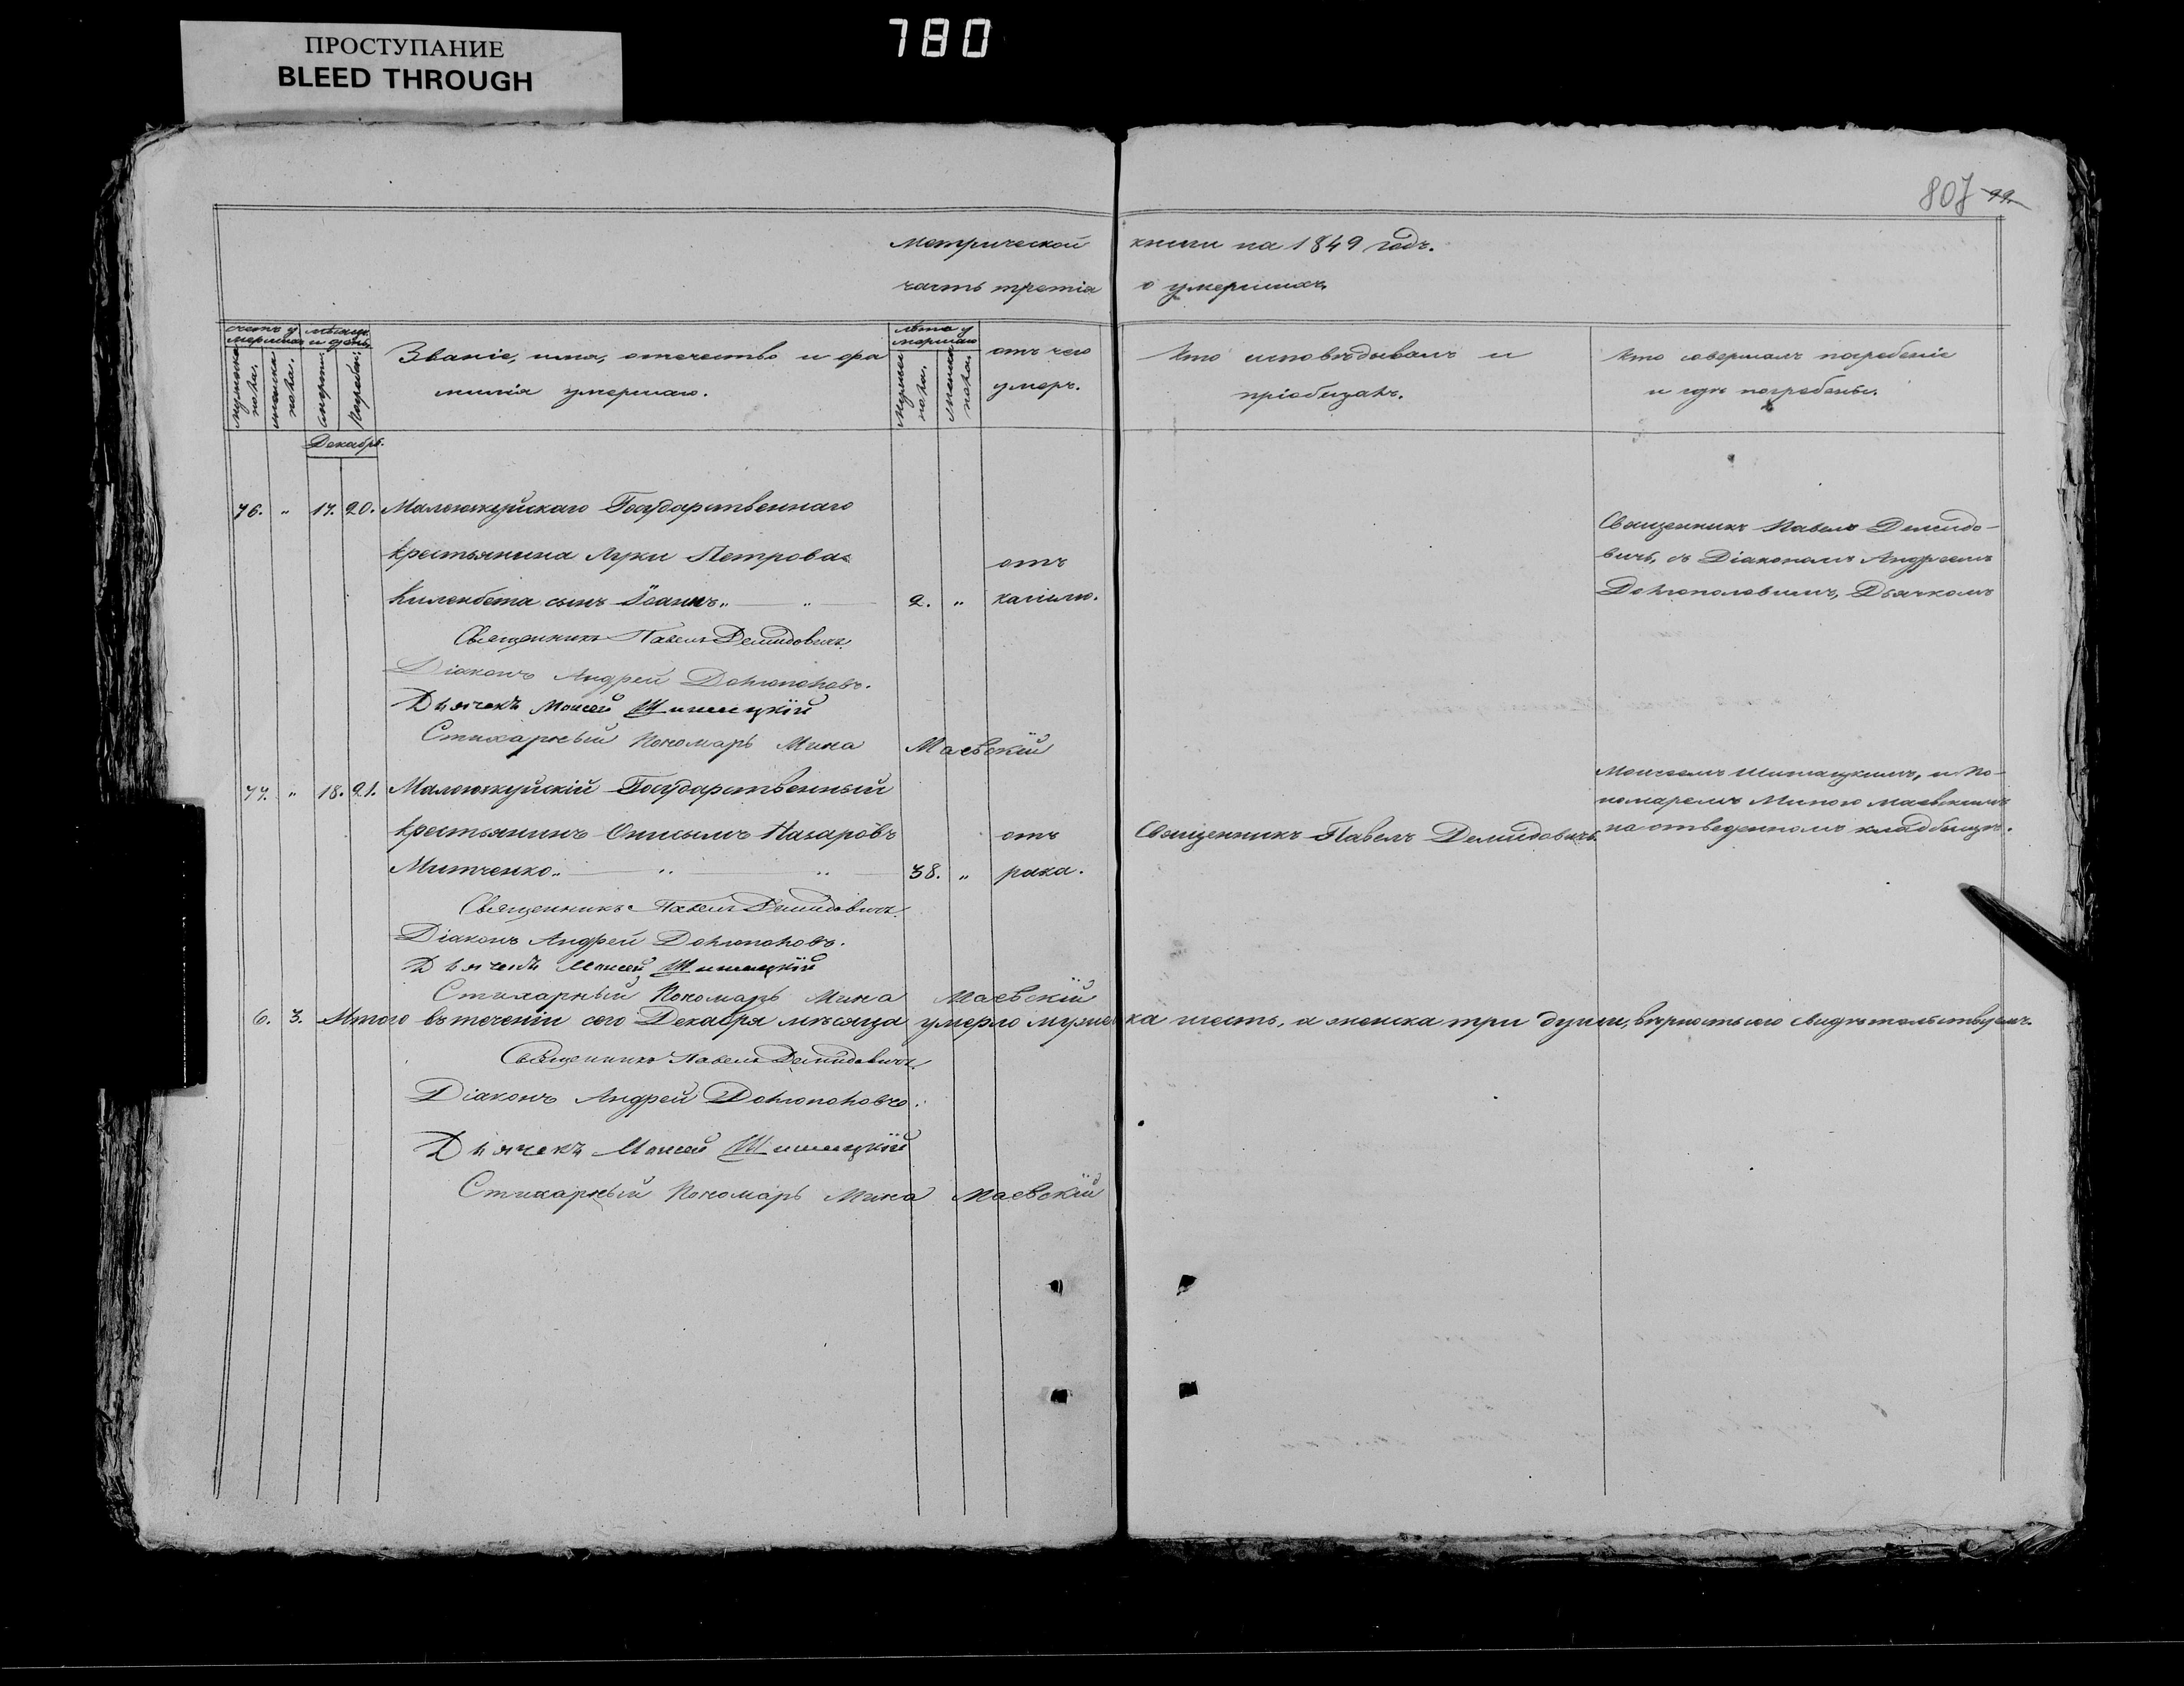 ПРОСТУПАНИЕ
BLEED THROUGH
780
807 99.
метрической книги на 1849 годъ.
часть третія о умершихъ.
счетъ умершихъ
мужска пола.
женска пола.
мѣсяцъ и день
смерти.
Погребен:
Званіе, имя, отечество и фамилія умершаго.
лѣта умершаго
Мужеска пола.
женска пола.
отъ чего умеръ.
Кто исповѣдывалъ и пріобщалъ.
Кто совершалъ погребеніе и гдѣ погребены.
Декабрь.
76. " 17. 20. Государственнаго
крестьянина Луки Петрова
сынъ Іоаннъ " " 2. " отъ кашлю.
Священникъ Павелъ Демидовичъ.
Діаконъ Андрей
Дьячекъ Моисей Шишацкій
Стихарный Пономарь Мина Маевскій
77. " 18. 21. Государственный
крестьянинъ Онисимъ Назаровъ
Митченко " " " 38. " отъ рака.
Священникъ Павелъ Демидовичъ.
Священникъ Павелъ Демидовичъ.
Діаконъ Андрей
Дьячекъ Моисей Шишацкій
Стихарный Пономарь Мина Маевскій
Священникъ Павелъ Демидо-
вичъ, съ Діакономъ Андреемъ
Дьячкомъ
Моисеемъ Шишацкимъ, и По-
номаремъ Миною Маевскимъ
на отведенномъ кладбищѣ.
6. 3. Итого въ теченіи сего Декабря мѣсяца умерло мужеска шесть, а женска три души, вѣрность сего свидѣтельствуемъ.
Священникъ Павелъ Демидовичъ.
Діаконъ Андрей
Дьячекъ Моисей Шишацкій
Стихарный Пономарь Мина Маевскій